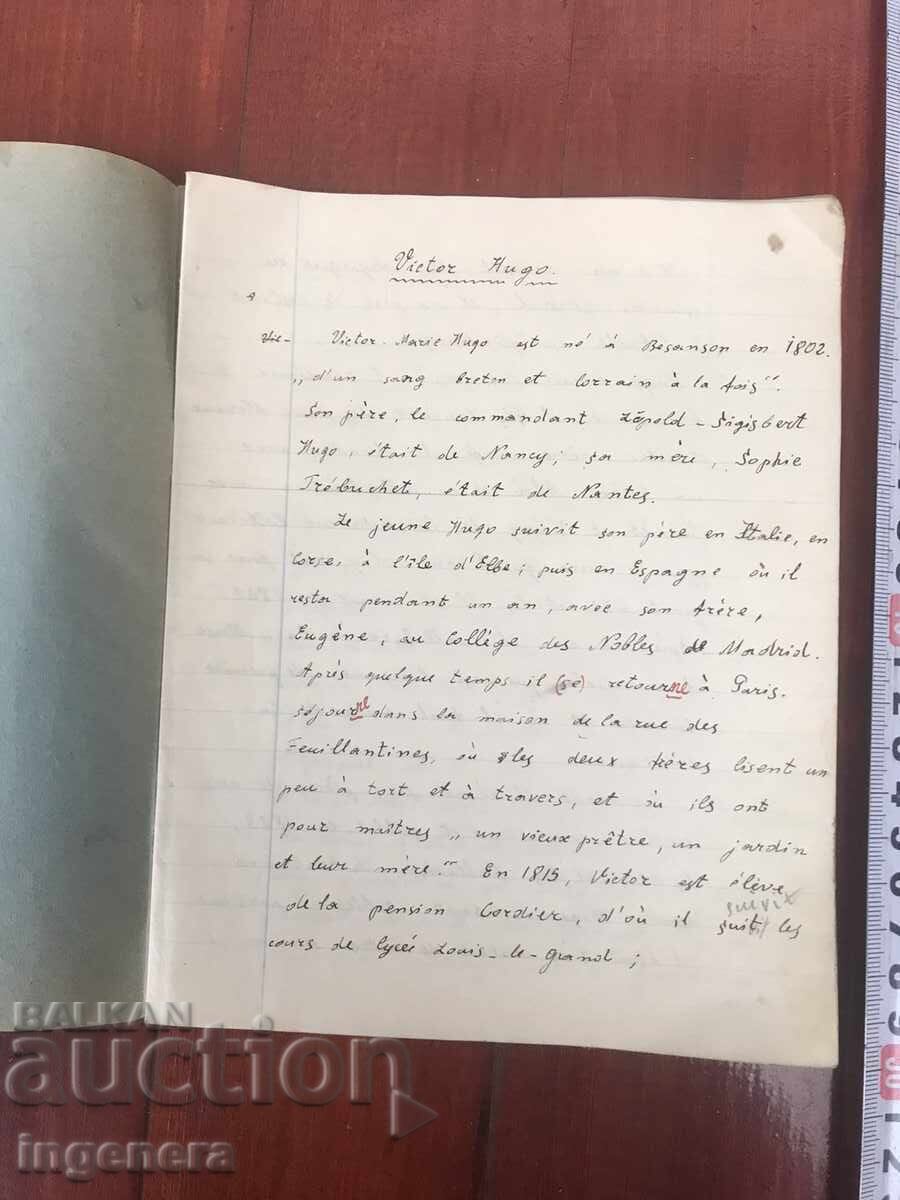 Victor Hugo.
Vie- Victor-Marie Hugo est né à Besanson en 1802.
„d'un sang breton et lorrain à la fois".
Son père, le commandant Léopold-Sigisbert
Hugo, était de Nancy; sa mère, Sophie
Trébuchet, était de Nantes.
Le jeune Hugo suivit son père en Italie, en
Corse, à l'île d'Elbe; puis en Espagne où il
resta pendant un an, avec son frère,
Eugène, au Collége des Nobles de Madrid.
Après quelque temps il (se) retourne à Paris.
séjourne dans la maison de la rue des
Feuillantines, où les deux frères lisent un
peu à tort et à travers, et où ils ont
pour maîtres „un vieux prêtre, un jardin
et leur mère." En 1815, Victor est élève
de la pension Cordier, d'où il suit les
cours de lycée Louis-le-Grand;
BALKAN
auction
ingenera